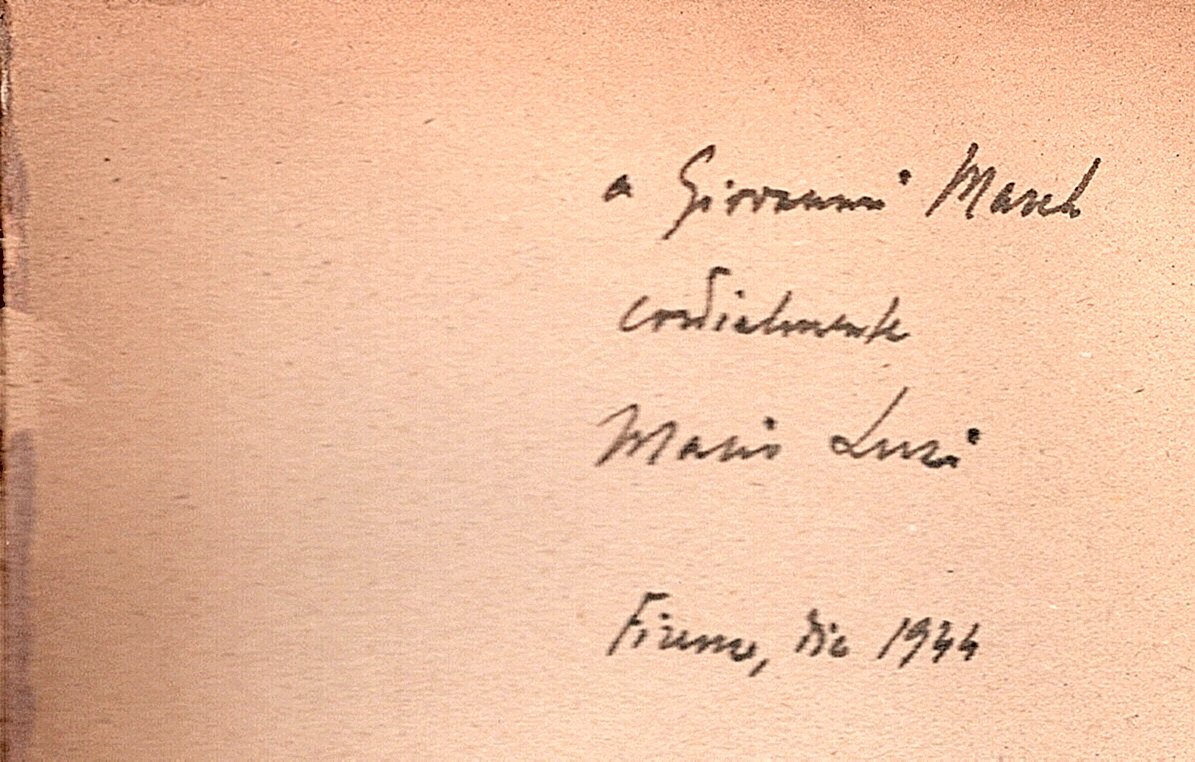 a Giovanni
cordialmente
Mario Luzi
Firenze, dic 1944